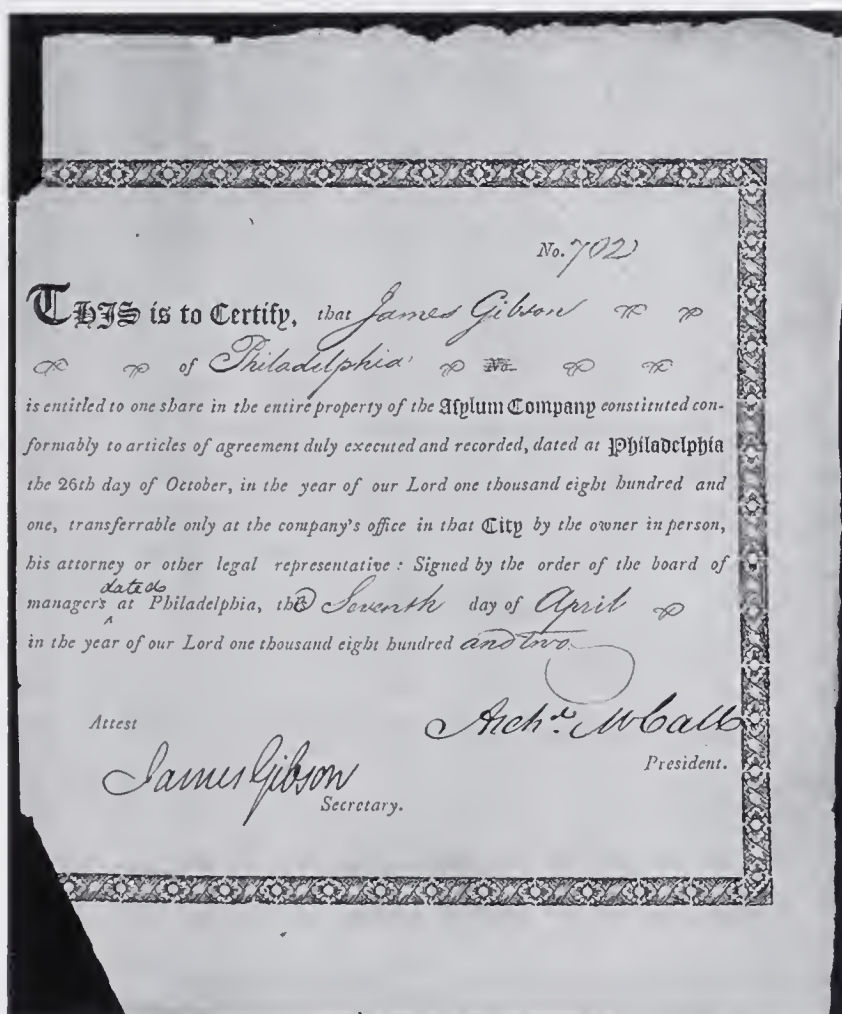 No. 702
THIS is to Certify, that James Gibson
of Philadelphia No.
is entitled to one share in the entire property of the Aſylum Company constituted con-
formably to articles of agreement duly executed and recorded, dated at Philadelphia
the 26th day of October, in the year of our Lord one thousand eight hundred and
one, transferrable only at the company's office in that City by the owner in person,
his attorney or other legal representative: Signed by the order of the board of
dated
managers at Philadelphia, the Seventh day of April
in the year of our Lord one thousand eight hundred and two
Attest
Archd. McCall
President.
James Gibson
Secretary.